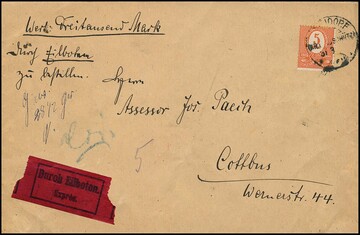 Wert: Dreitausend Mark
Durch Eilboten
zu bestellen.
Herrn
Assessor Jos. Paech
5
Cottbus
Wernerstr. 44.
Durch Eilboten.
Exprès.
5